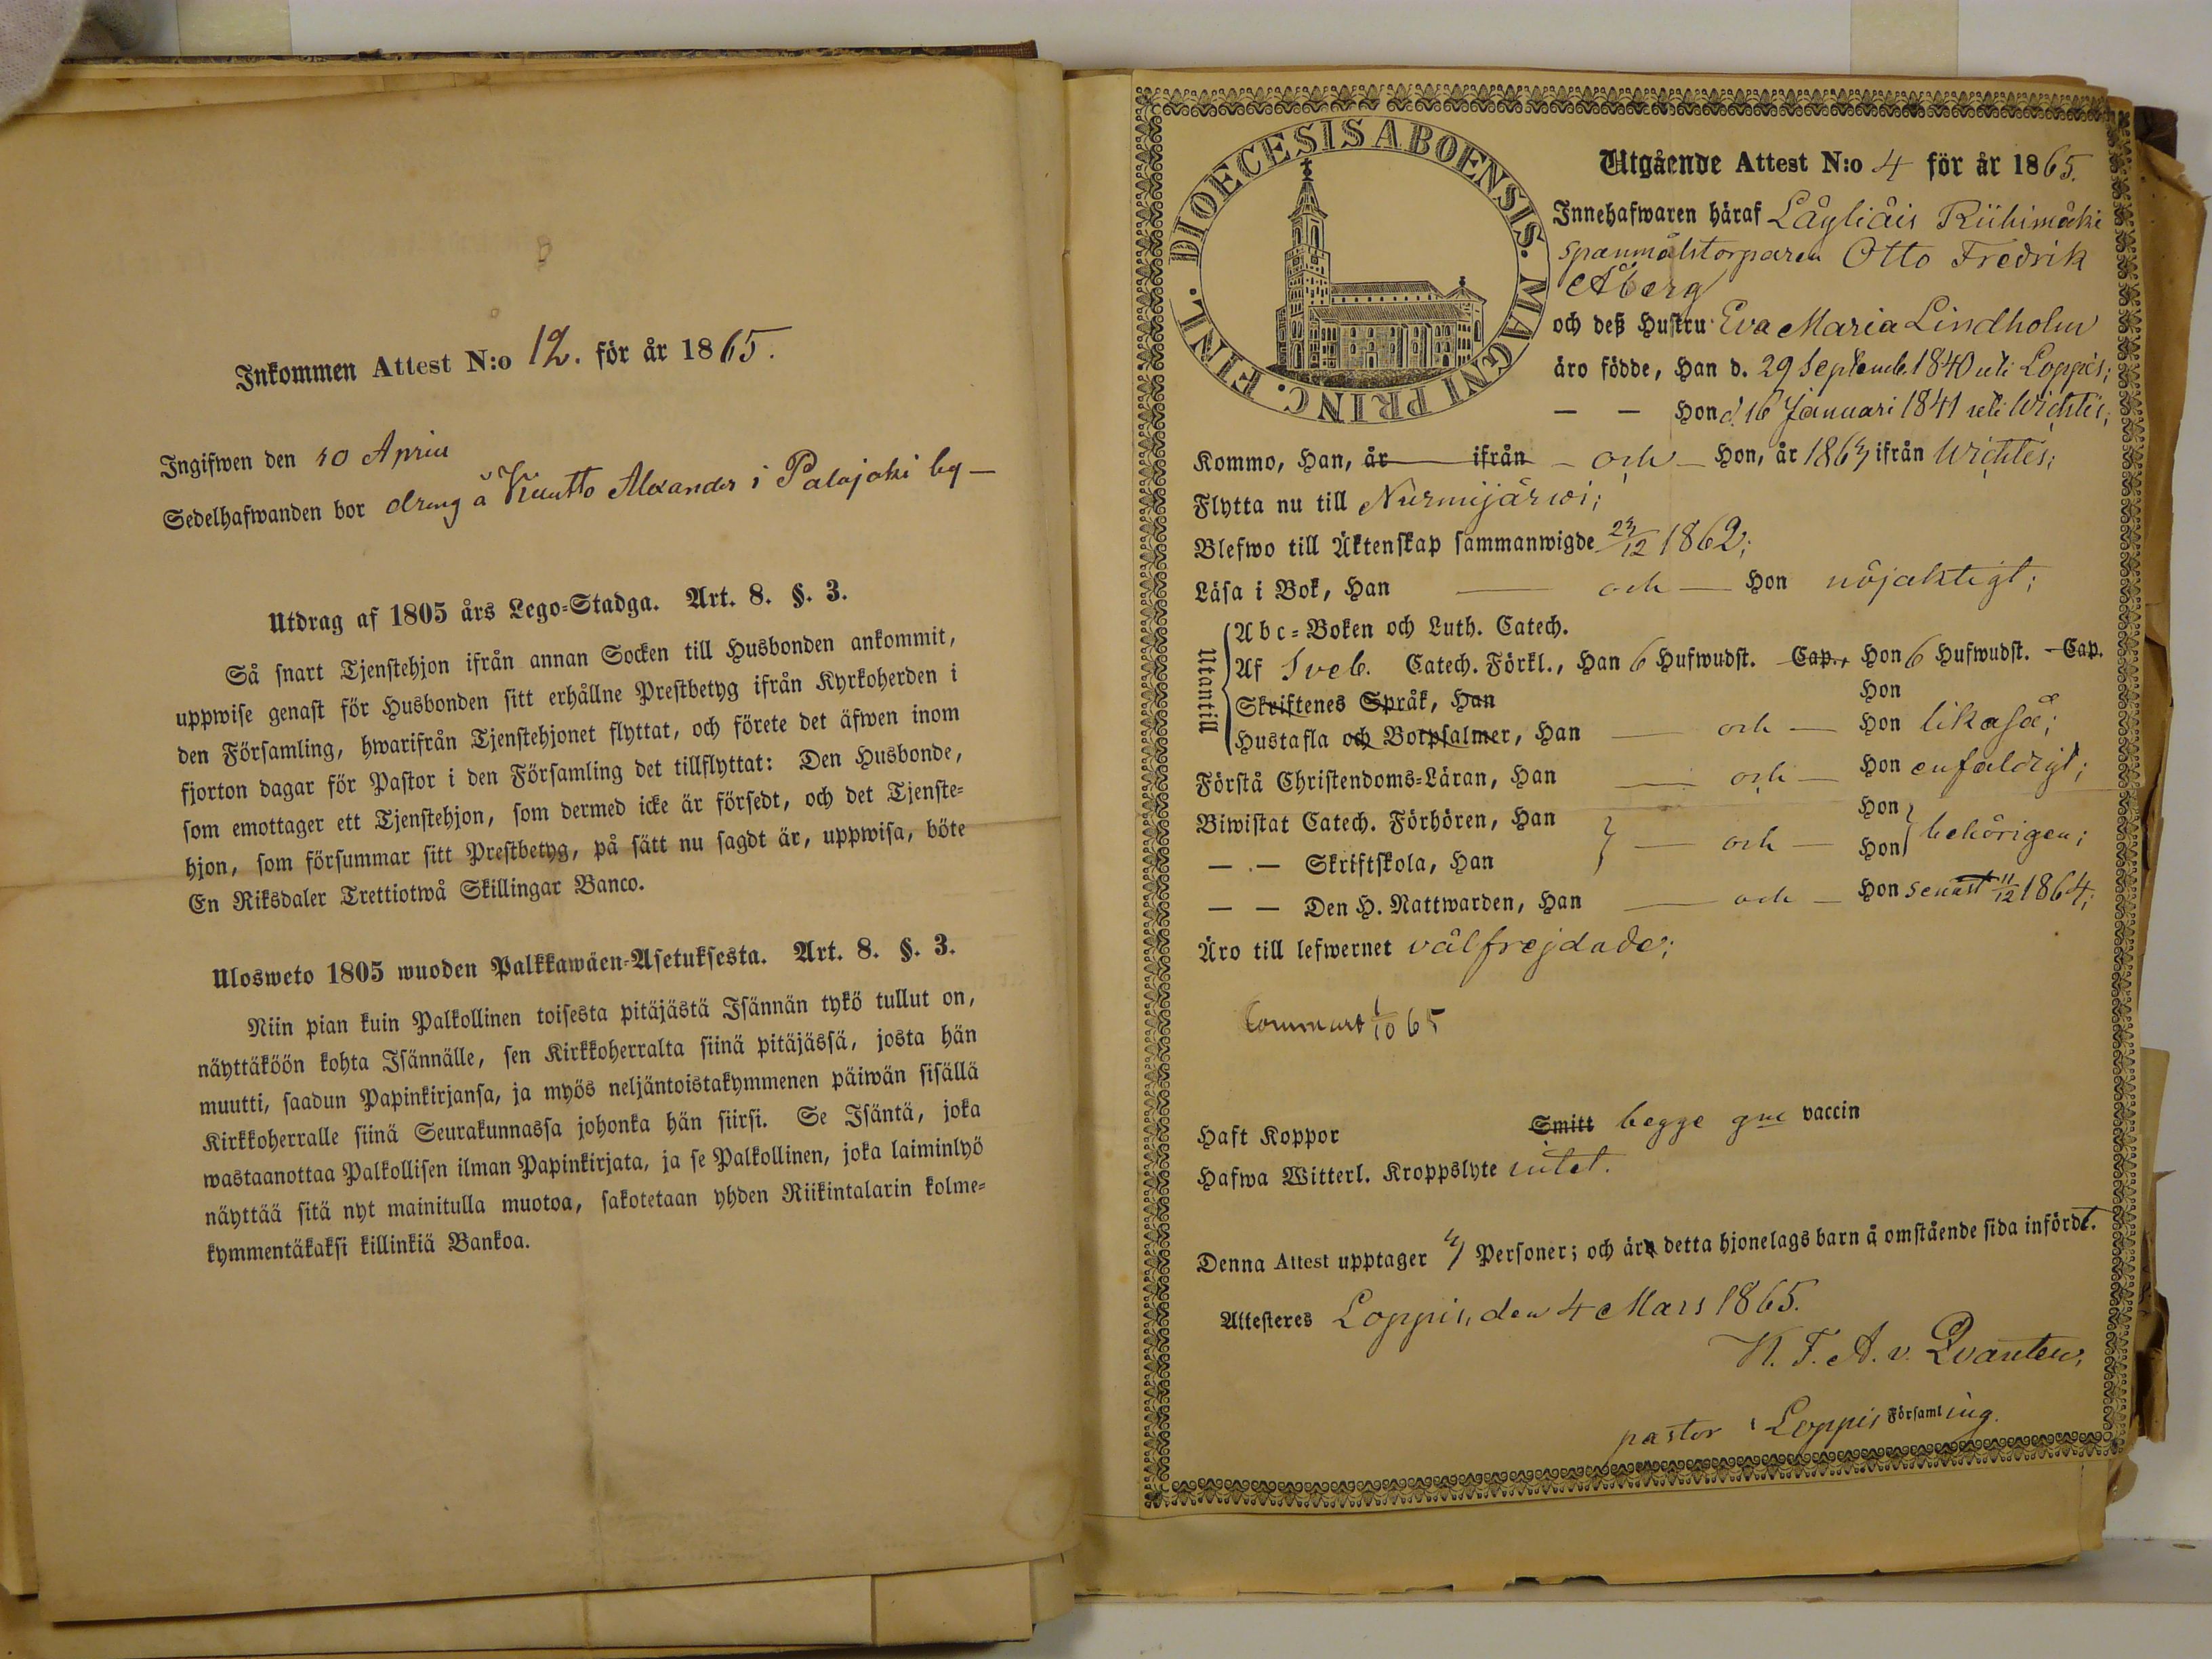 Inkommen Attest N:o 12. för år 1865.
Ingifwen den 10 April
Sedelhafwanden bor dreng å Kuutto Alexander i Palojoki by —
Utdrag af 1805 års Lego=Stadga. Art. 8. §. 3.
Så snart Tjenstehjon ifrån annan Socken till Husbonden ankommit,
uppwise genast för Husbonden sitt erhållne Prestbetyg ifrån Kyrkoherden i
den Församling, hwarifrån Tjenstehjonet flyttat, och förete det äfwen inom
fjorton dagar för Pastor i den Församling det tillflyttat: Den Husbonde,
som emottager ett Tjenstehjon, som dermed icke är försedt, och det Tjenste=
hjon, som försummar sitt Prestbetyg, på sätt nu sagdt är, uppwisa, böte
En Riksdaler Trettiotwå Skillingar Banco.
Ulosweto 1805 wuoden Palkkawäen=Asetuksesta. Art. 8. §. 3.
Niin pian kuin Palkollinen toisesta pitäjästä Isännän tykö tullut on,
näyttäköön kohta Isännälle, sen Kirkkoherralta siinä pitäjässä, josta hän
muutti, saadun Papinkirjansa, ja myös neljäntoistakymmenen päiwän sisällä
Kirkkoherralle siinä Seurakunnassa johonka hän siirsi. Se Isäntä, joka
wastaanottaa Palkollisen ilman Papinkirjata, ja se Palkollinen, joka laiminlyö
näyttää sitä nyt mainitulla muotoa, sakotetaan yhden Riikintalarin kolme=
kymmentäkaksi killinkiä Bankoa.
DIOECESIS ABOENSIS. MAGNI PRINC. FINL.
Utgående Attest N:o 4 för år 1865.
Innehafwaren häraf Läyliäis Riihimäki
spanmålstorparen Otto Fredrik
Åberg
och deß Hustru Eva Maria Lindholm
äro födde, Han d. 29 Septemb. 1840 uti Loppis;
— — Hon d. 16 Januari 1841 uti Wichtis;
Kommo, Han, år ifrån — och — Hon, år 1863 ifrån Wichtis;
Flytta nu till Nurmijärwi;
Blefwo till Äktenskap sammanwigde 23/12 1862;
Läsa i Bok, Han — och — Hon nöjaktigt;
Utantill
Abc=Boken och Luth. Catech.
Af Sveb. Catech. Förkl., Han 6 Hufwudst. Cap., Hon 6 Hufwudst. — Cap.
Skriftenes Språk, Han Hon
Hustafla och Botpsalmer, Han — och — Hon likaså;
Förstå Christendoms=Läran, Han — och — Hon enfaldigt;
Biwistat Catech. Förhören, Han Hon
— — Skriftskola, Han — och — Hon behörigen;
— — Den H. Nattwarden, Han — och — Hon senast 11/12 1864;
Äro till lefwernet välfrejdade;
1/10 65
Haft Koppor Smitt begge gne vaccin
Hafwa Witterl. Kroppslyte intet.
Denna Attest upptager Personer; och är detta hjonelags barn å omstående sida infördt.
Attesteres Loppis, den 4 Mars 1865.
K. F. A. v. Qvanten,
pastor i Loppis Församling.